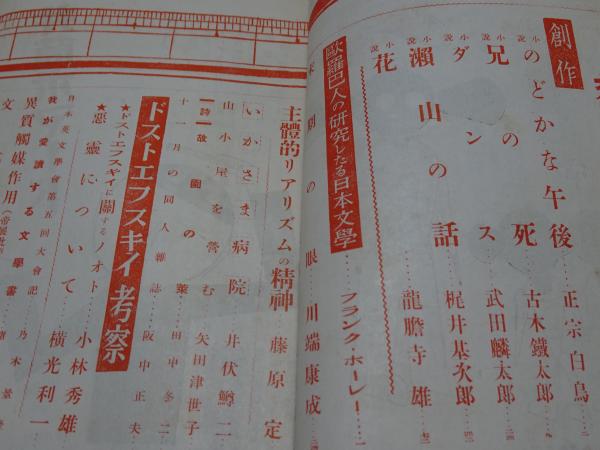 創作
小説 のどかな午後……正宗白鳥
小説 兄の死……古木鐵太郎
小説 ダンス……武田麟太郎
小説 瀬山の話……梶井基次郎
小説 花……龍膽寺雄
歐羅巴人の研究したる日本文學……フランク・ホーレー
末期の眼……川端康成
主體的リアリズムの精神 藤原定
いかさま病院 井伏鱒二
山小屋を營む 矢田津世子
【詩】故園の菜 田中冬二
十一月の同人雜誌 阪中正夫
ドストエフスキイ考察
★ドストエフスキイに關するノオト 小林秀雄
★惡靈について 橫光利一
日本英文學會第五回大會記 乃木
我が愛讀する文學書
異質觸媒作用